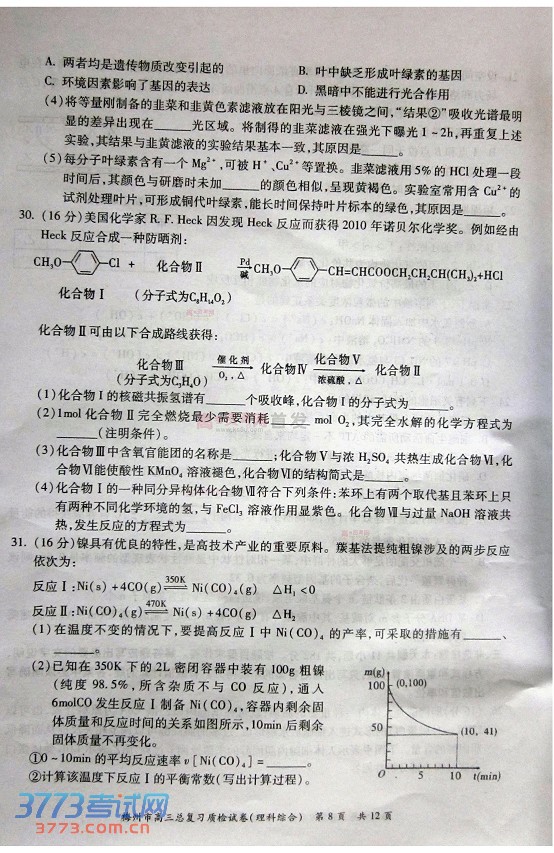 A. 两者均是遗传物质改变引起的 B. 叶中缺乏形成叶绿素的基因
C. 环境因素影响了基因的表达 D. 黑暗中不能进行光合作用
(4)将等量刚制备的韭菜和韭黄色素滤液放在阳光与三棱镜之间,“结果②”吸收光谱最明
显的差异出现在______光区域。将制得的韭菜滤液在强光下曝光1~2h,再重复上述
实验,其结果与韭黄滤液的实验结果基本一致,其原因是______。
(5)每分子叶绿素含有一个Mg²⁺,可被H⁺、Cu²⁺等置换。韭菜滤液用5%的HCl处理一段
时间后,其颜色与研磨时未加______的颜色相似,呈现黄褐色。实验室常用含Cu²⁺的
试剂处理叶片,可形成铜代叶绿素,能长时间保持叶片标本的绿色,其原因是______。
30. (16分)美国化学家R. F. Heck因发现Heck反应而获得2010年诺贝尔化学奖。例如经由
Heck反应合成一种防晒剂:
CH₃O Cl + 化合物Ⅱ Pd 碱 CH₃O CH=CHCOOCH₂CH₂CH(CH₃)₂+HCl
化合物Ⅰ (分子式为C₈H₁₄O₂)
化合物Ⅱ可由以下合成路线获得:
化合物Ⅲ 催化剂 O₂,△ 化合物Ⅳ 化合物Ⅴ 浓硫酸,△ 化合物Ⅱ
(分子式为C₃H₄O)
(1)化合物Ⅰ的核磁共振氢谱有______个吸收峰,化合物Ⅰ的分子式为______。
(2)1mol化合物Ⅱ完全燃烧最少需要消耗______mol O₂,其完全水解的化学方程式为
______(注明条件)。
(3)化合物Ⅲ中含氧官能团的名称是______;化合物Ⅴ与浓H₂SO₄共热生成化合物Ⅵ,化
合物Ⅵ能使酸性KMnO₄溶液褪色,化合物Ⅵ的结构简式是______。
(4)化合物Ⅰ的一种同分异构体化合物Ⅶ符合下列条件:苯环上有两个取代基且苯环上只
有两种不同化学环境的氢,与FeCl₃溶液作用显紫色。化合物Ⅶ与过量NaOH溶液共
热,发生反应的方程式为______。
31. (16分)镍具有优良的特性,是高技术产业的重要原料。羰基法提纯粗镍涉及的两步反应
依次为:
反应Ⅰ:Ni(s)+4CO(g) 350K Ni(CO)₄(g) △H₁<0
反应Ⅱ:Ni(CO)₄(g) 470K Ni(s)+4CO(g) △H₂
(1)在温度不变的情况下,要提高反应Ⅰ中Ni(CO)₄的产率,可采取的措施有______、
______。
(2)已知在350K下的2L密闭容器中装有100g粗镍
(纯度98.5%,所含杂质不与CO反应),通入
6molCO发生反应Ⅰ制备Ni(CO)₄,容器内剩余固
体质量和反应时间的关系如图所示,10min后剩余
固体质量不再变化。
①0~10min的平均反应速率v[Ni(CO)₄]=______。
②计算该温度下反应Ⅰ的平衡常数(写出计算过程)。
m(g)
100 (0,100)
50 (10, 41)
0 5 10 t(min)
梅州市高三总复习质检试卷(理科综合) 第8页 共12页
3773考试网
www.3773.com.cn